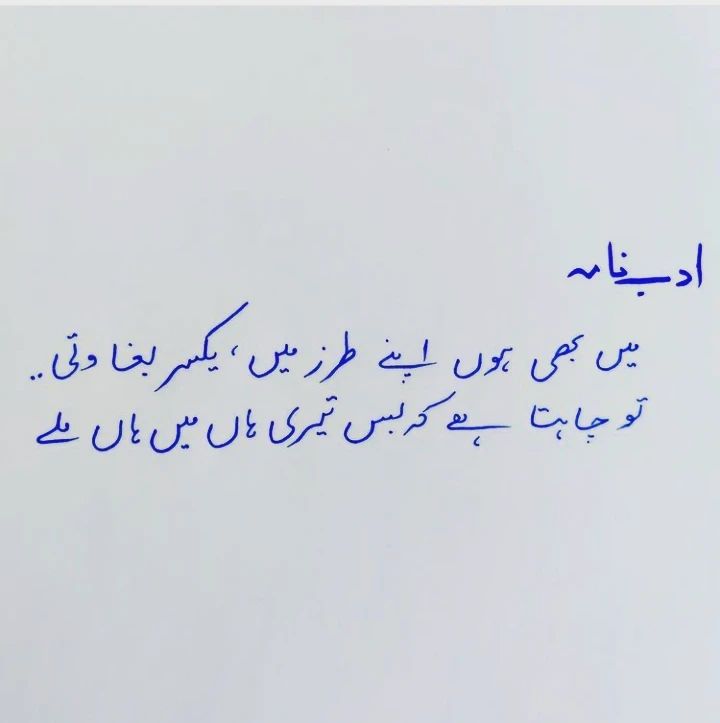 ادب نامہ
میں بھی ہوں اپنے طرز میں، یکسر بغاوتی..
تو چاہتا ہے کہ بس تیری ہاں میں ہاں ملے